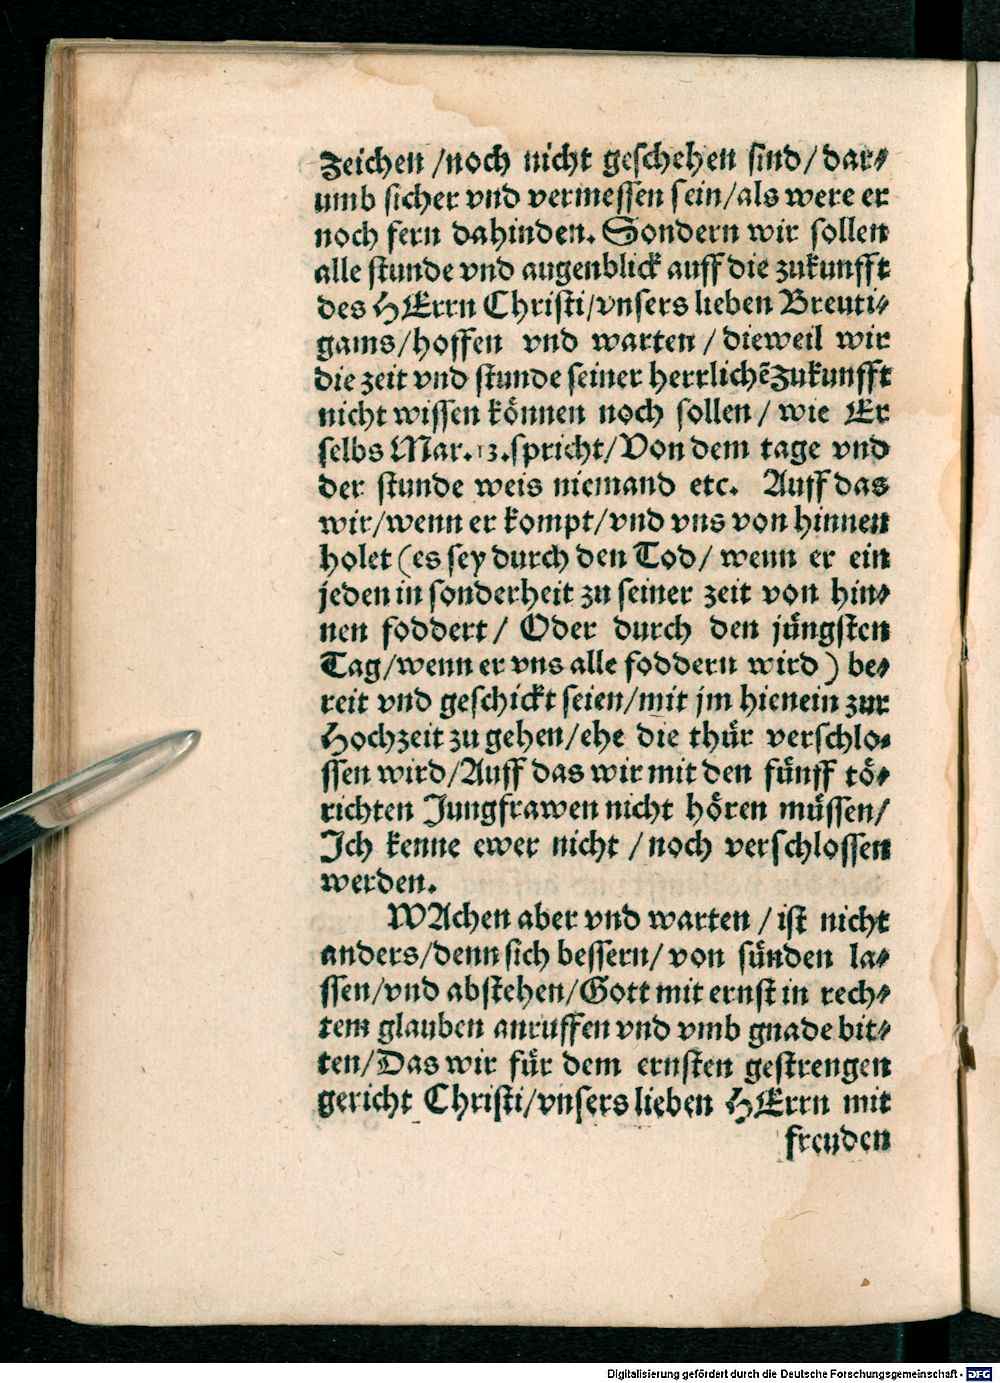 zeichen /noch nicht geschehen sind/ dar⸗
umb sicher vnd vermessen sein/als were er
noch fern dahinden. Sondern wir sollen
alle stunde vnd augenblick auff die zukunfft
des HErrn Christi/vnsers lieben Breuti⸗
gams/hoffen vnd warten / dieweil wir
die zeit vnd stunde seiner herrlichẽ zukunfft
nicht wissen können noch sollen / wie Er
selbs Mar. 13. spricht/ Von dem tage vnd
der stunde weis niemand etc. Auff das
wir/wenn er kompt/vnd vns von hinnen
holet (es sey durch den Tod/ wenn er ein
jeden in sonderheit zu seiner zeit von hin⸗
nen foddert/ Oder durch den jüngsten
Tag/wenn er vns alle foddern wird) be⸗
reit vnd geschickt seien/mit jm hienein zur
Hochzeit zu gehen/ehe die thür verschlo⸗
ssen wird/Auff das wir mit den fünff tö⸗
richten Jungfrawen nicht hören müssen/
Ich kenne ewer nicht /noch verschlossen
werden.
WAchen aber vnd warten / ist nicht
anders/denn sich bessern/ von sünden la⸗
ssen/vnd abstehen/Gott mit ernst in rech⸗
tem glauben anruffen vnd vmb gnade bit⸗
ten/Das wir für dem ernsten gestrengen
gericht Christi/vnsers lieben HErrn mit
freuden
Digitalisierung gefördert durch die Deutsche Forschungsgemeinschaft - DFG